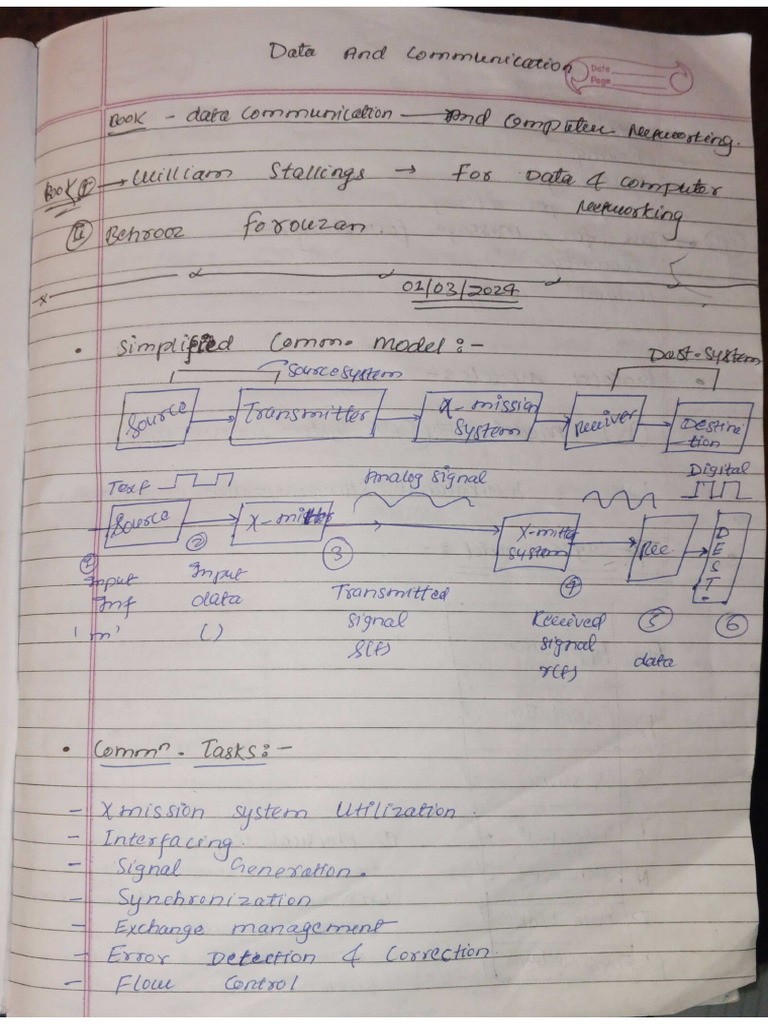 Data And Communication
Date
Page
Book - data Communication — And Computer Networking.
Book ① → William Stallings → For Data & Computer
Networking
② Behrooz Forouzan.
01/03/2024
• Simplified Comm. model :-
Source system
Dest. System
Source
Transmitter
X-mission
System
Receiver
Destina
tion
Text
Analog Signal
Digital
Source
X-mitter
X-mitter
System
Rec
DEST.
① ② ③ ④ ⑤ ⑥
Input
Inf
'm'
Input
data
()
Transmitted
signal
S(t)
Received
signal
r(t)
data
• Commⁿ. Tasks :-
- Xmission system Utilization.
- Interfacing.
- Signal Generation.
- Synchronization
- Exchange management
- Error Detection & Correction.
- Flow Control